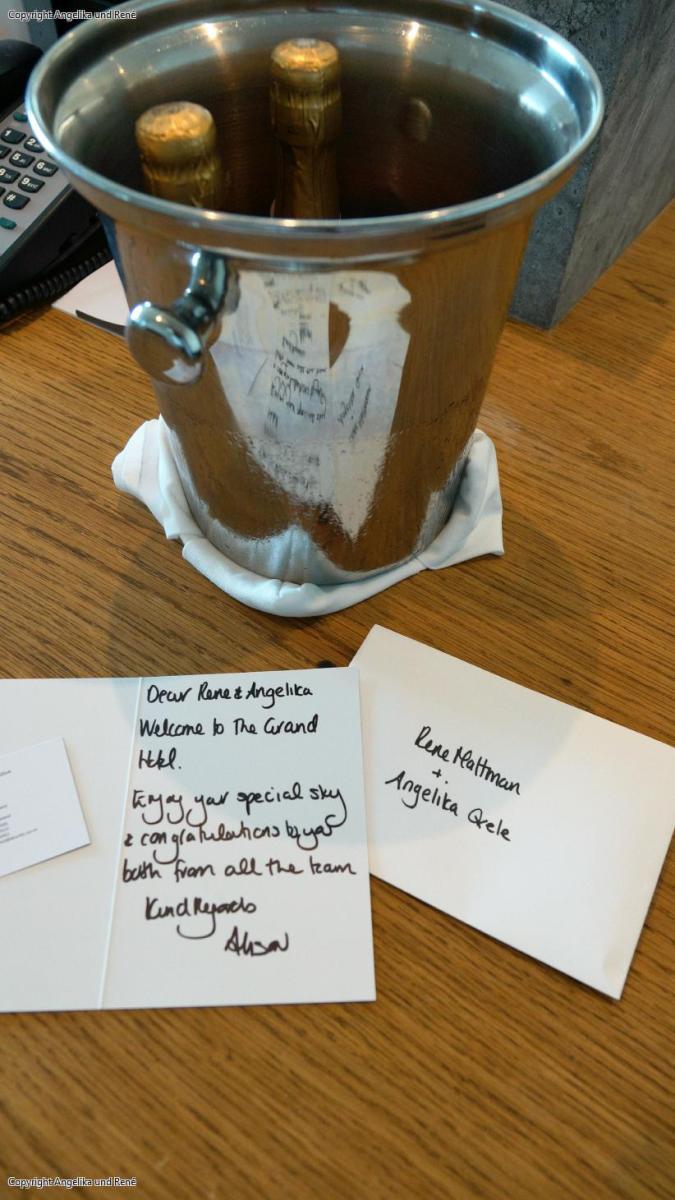 Copyright Angelika und René
Dear Rene & Angelika
Welcome to The Grand
Hotel.
Enjoy your special sky
& congratulations to you
both from all the team
Kind Regards
Alison
Rene Mattman
+
Angelika
Copyright Angelika und René